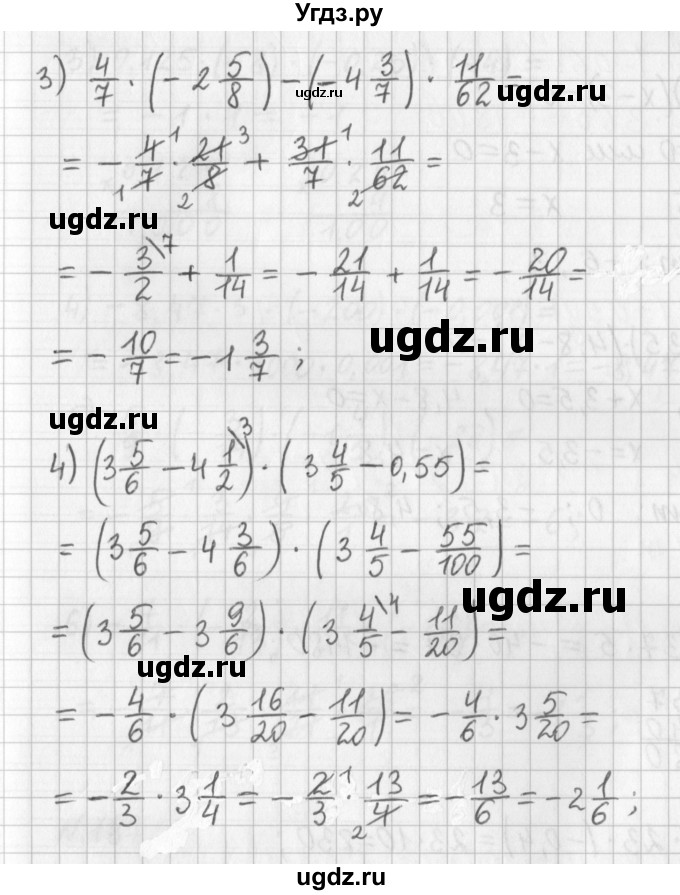 Угдз.ру
3) 4/7 · (- 2 5/8) - (- 4 3/7) · 11/62 =
ugdz.ru
ugdz.ru
= - 4/7 · 21/8 + 31/7 · 11/62 =
1 1 2 3 1 2
ugdz.ru
= - 3/2 \7 + 1/14 = - 21/14 + 1/14 = - 20/14 =
= - 10/7 = - 1 3/7 ;
ugdz.ru
ugdz.ru
4) (3 5/6 - 4 1/2 \3) · (3 4/5 - 0,55) =
= (3 5/6 - 4 3/6) · (3 4/5 - 55/100) =
ugdz.ru
= (3 5/6 - 3 9/6) · (3 4/5 \4 - 11/20) =
ugdz.ru
= - 4/6 · (3 16/20 - 11/20) = - 4/6 · 3 5/20 =
= - 2/3 · 3 1/4 = - 2/3 · 13/4 = - 13/6 = - 2 1/6 ;
1 2